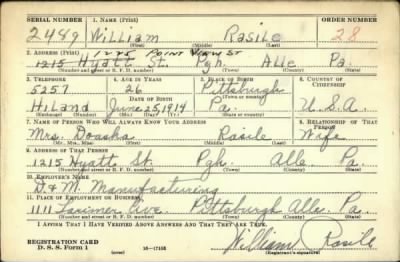 SERIAL NUMBER 1. NAME (Print) ORDER NUMBER
2489 William Rasile 28
(First) (Middle) (Last)
1275 POINT VIEW ST
2. ADDRESS (Print)
1215 Hyatt St. Pgh. Alle Pa.
(Number and street or R. F. D. number) (Town) (County) (State)
3. TELEPHONE 4. AGE IN YEARS 5. PLACE OF BIRTH 6. COUNTRY OF CITIZENSHIP
5257 26 Pittsburgh
DATE OF BIRTH (Town or county)
Hiland June 25, 1914 Pa. U.S.A.
(Exchange) (Number) (Mo.) (Day) (Yr.) (State or country)
7. NAME OF PERSON WHO WILL ALWAYS KNOW YOUR ADDRESS 8. RELATIONSHIP OF THAT PERSON
Mrs. Rasile Wife
(Mr., Mrs., Miss) (First) (Middle) (Last)
9. ADDRESS OF THAT PERSON
1215 Hyatt St. Pgh. Alle. Pa.
(Number and street or R. F. D. number) (Town) (County) (State)
10. EMPLOYER'S NAME
D. & M. Manufacturing
11. PLACE OF EMPLOYMENT OR BUSINESS
1111 Larimer Ave. Pittsburgh Alle. Pa.
(Number and street or R. F. D. number) (Town) (County) (State)
I AFFIRM THAT I HAVE VERIFIED ABOVE ANSWERS AND THAT THEY ARE TRUE.
REGISTRATION CARD William Rasile
D. S. S. Form 1 (over) 16—17105 (Registrant's signature)